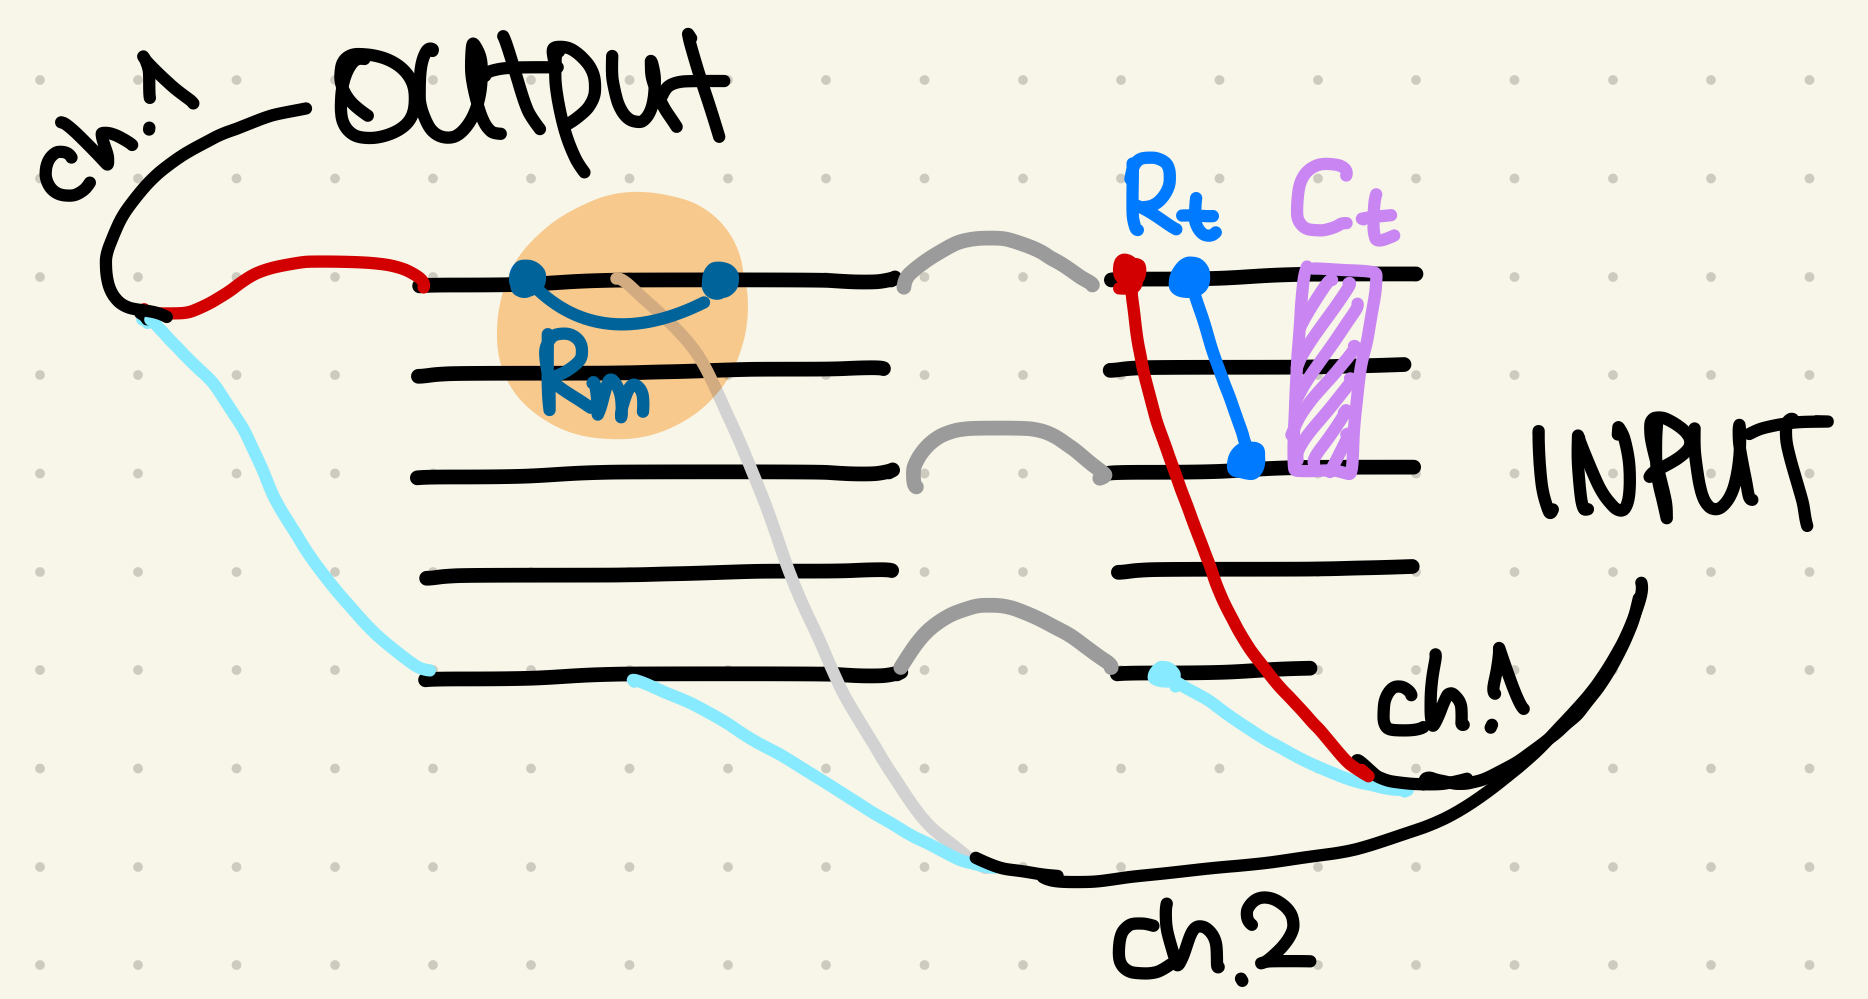 ch.1
OUtPUt
Rt
Ct
Rm
INPUT
ch.1
ch.2